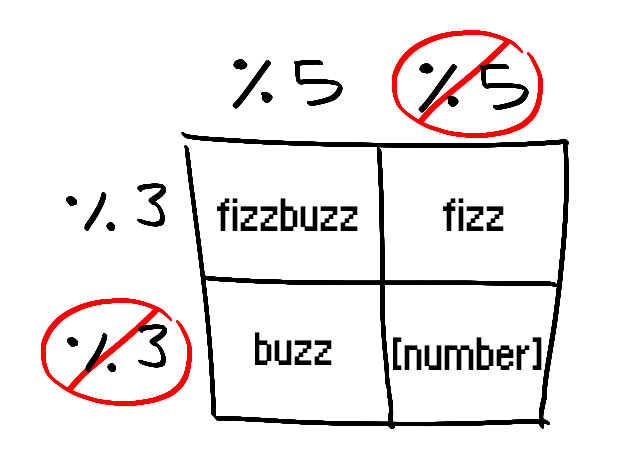 %5 %5
%3 fizzbuzz fizz
%3 buzz [number]